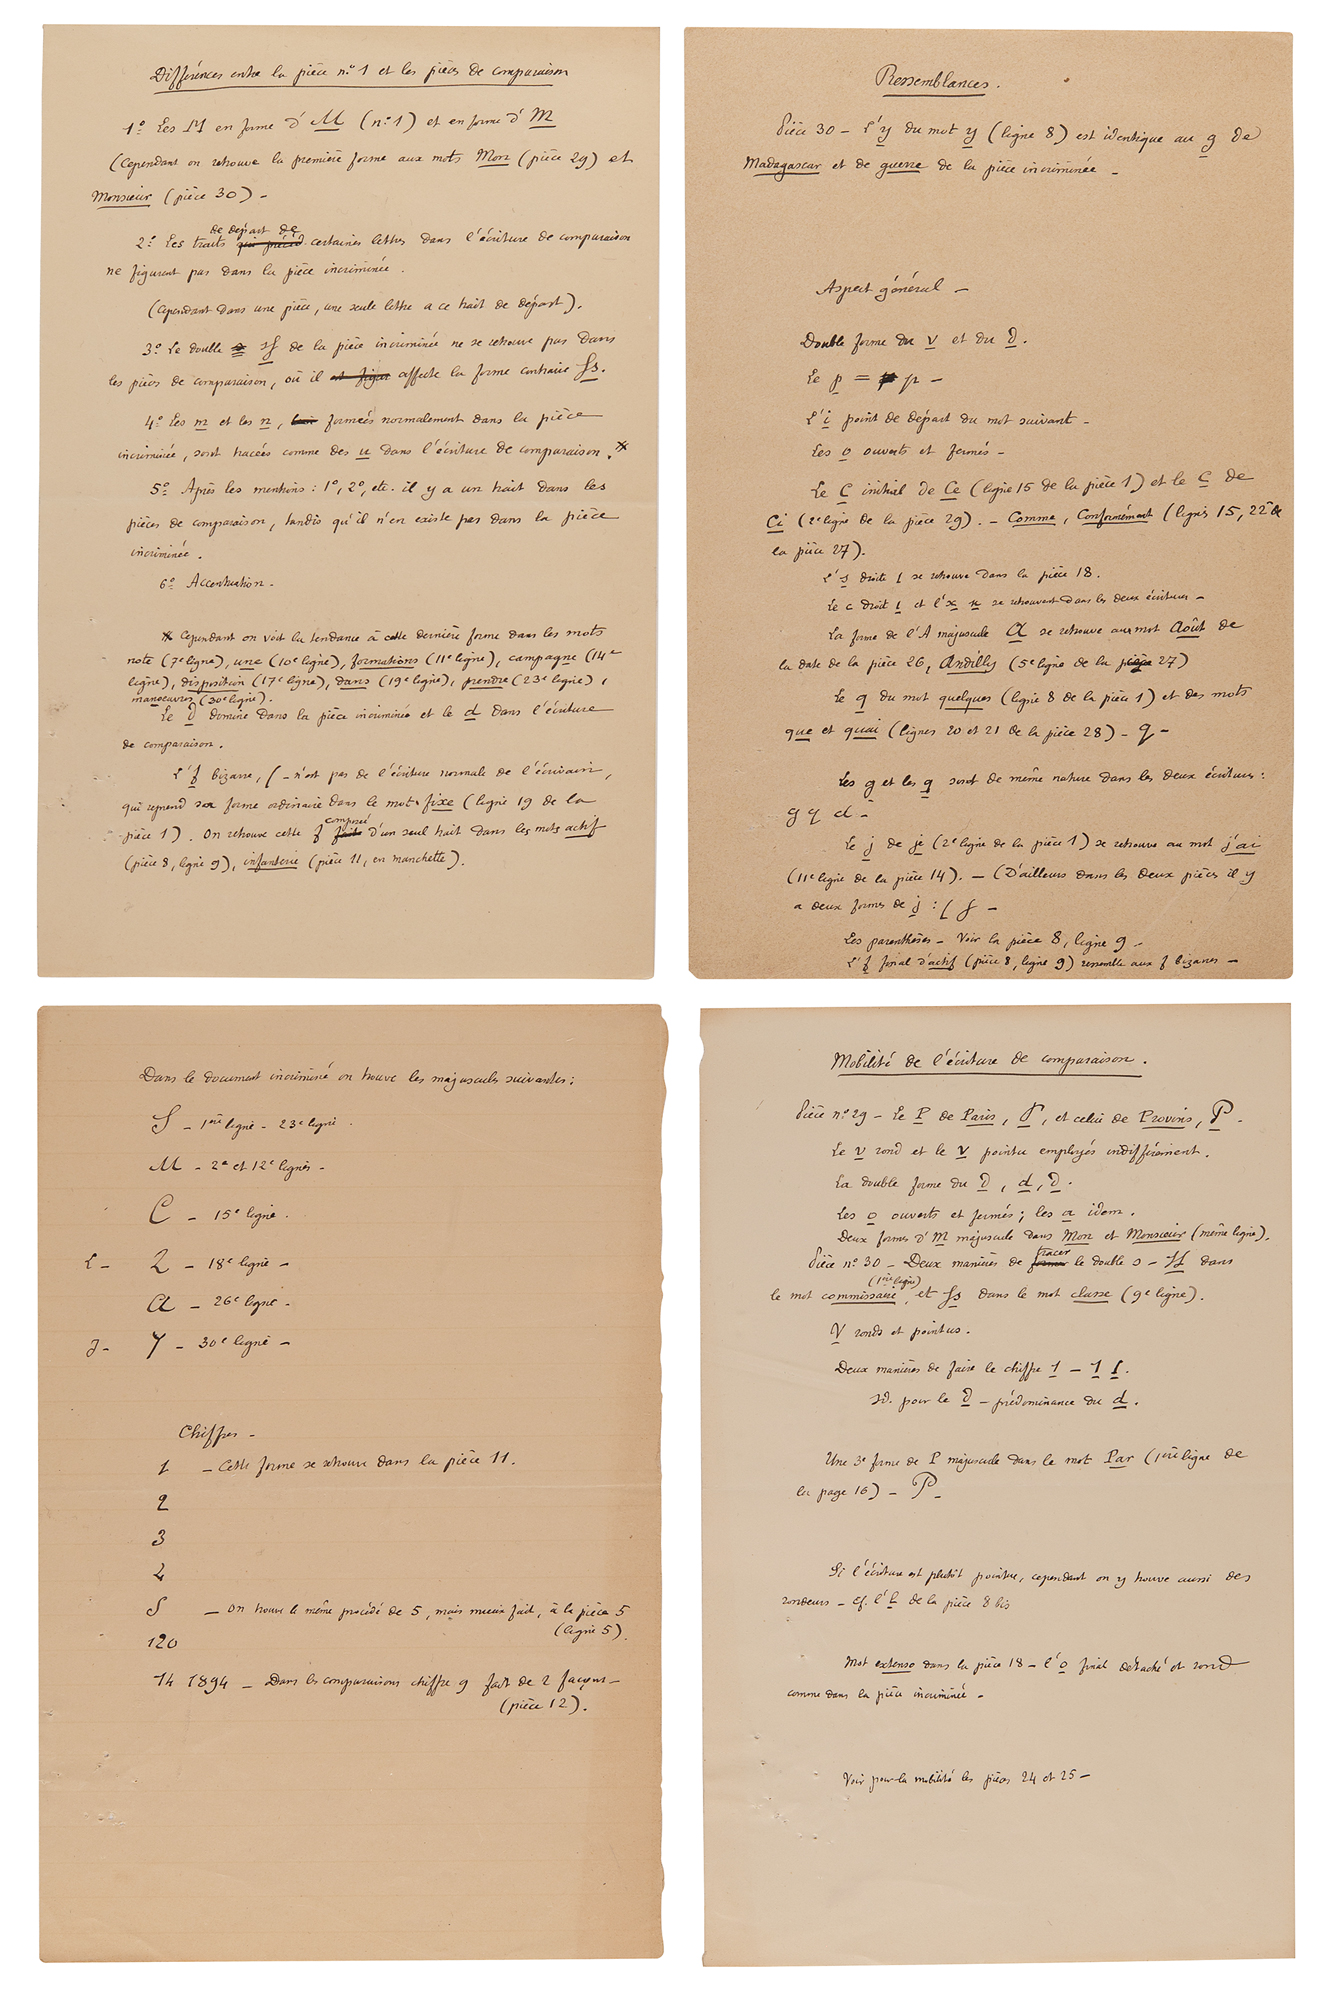 Différences entre la pièce n° 1 et les pièces de comparaison
1° Les M en forme d' M (n° 1) et en forme d' M
(Cependant on retrouve la première forme aux mots Mon (pièce 29) et
Monsieur (pièce 30) –
de départ de
2° Les traits certaines lettres dans l'écriture de comparaison
ne figurent pas dans la pièce incriminée.
(Cependant dans une pièce, une seule lettre a ce trait de départ).
3° Le double ss de la pièce incriminée ne se retrouve pas dans
les pièces de comparaison, où il affecte la forme contraire ss.
4° Les m et les n, formées normalement dans la pièce
incriminée, sont tracées comme des u dans l'écriture de comparaison. *
5° Après les mentions : 1°, 2°, etc. il y a un trait dans les
pièces de comparaison, tandis qu'il n'en existe pas dans la pièce
incriminée.
6° Accentuation.
* Cependant on voit la tendance à cette dernière forme dans les mots
note (7e ligne), une (10e ligne), formations (11e ligne), campagne (14e
ligne), disposition (17e ligne), dans (19e ligne), prendre (23e ligne),
manœuvres (30e ligne).
Le d domine dans la pièce incriminée et le d dans l'écriture
de comparaison.
L'f bizarre, ( – n'est pas de l'écriture normale de l'écrivain,
qui reprend sa forme ordinaire dans le mot fixe (ligne 19 de la
pièce 1). On retrouve cette f composé d'un seul trait dans les mots actif
(pièce 8, ligne 9), infanterie (pièce 11, en manchette).
Ressemblances.
Pièce 30 – L'y du mot y (ligne 8) est identique au g de
Madagascar et de guerre de la pièce incriminée –
Aspect général –
Double forme du v et du d.
Le p = p –
L'i point de départ du mot suivant –
Les o ouverts et fermés –
Le C initial de Ce (ligne 15 de la pièce 1) et le C de
Ci (2e ligne de la pièce 29). – Comme, Conformément (lignes 15, 22 de
la pièce 27).
L's droite ſ se retrouve dans la pièce 18.
Le c droit ι et l'x x se retrouvent dans les deux écritures –
La forme de l'A majuscule A se retrouve au mot Août de
la date de la pièce 26, Andilly (5e ligne de la pièce 27)
Le q du mot quelques (ligne 8 de la pièce 1) et des mots
que et quai (lignes 20 et 21 de la pièce 28) – q –
Les g et les q sont de même nature dans les deux écritures :
g q d –
Le j de je (2e ligne de la pièce 1) se retrouve au mot j'ai
(11e ligne de la pièce 14). – (D'ailleurs dans les deux pièces il y
a deux formes de j : ( j –
Les parenthèses – Voir la pièce 8, ligne 9 –
L'f final d'actif (pièce 8, ligne 9) ressemble aux f bizarres –
Dans le document incriminé on trouve les majuscules suivantes :
S – 1ère ligne – 23e ligne.
M – 2e et 12e lignes –
C – 15e ligne.
L – L – 18e ligne –
A – 26e ligne.
J – J – 30e ligne –
Chiffres –
1 – Cette forme se retrouve dans la pièce 11.
2
3
4
5 – on trouve le même procédé de 5, mais mieux fait, à la pièce 5
(ligne 5).
120
14 1894 – Dans les comparaisons chiffre 9 fait de 2 façons –
(pièce 12).
Mobilité de l'écriture de comparaison.
Pièce n° 29 – Le P de Paris, P, et celui de Provins, P –
Le v rond et le v pointu employés indifféremment.
La double forme du d, d, d.
Les o ouverts et fermés ; les a idem.
Deux formes d'M majuscule dans Mon et Monsieur (même ligne).
tracer
Pièce n° 30 – Deux manières de le double s – ss dans
(1ère ligne)
le mot commissaire, et ss dans le mot classe (9e ligne).
V ronds et pointus.
Deux manières de faire le chiffre 1 – 1 1.
Id. pour le d – prédominance du d.
Une 3e forme de P majuscule dans le mot Par (1ère ligne de
la page 16) – P –
Si l'écriture est plutôt pointue, cependant on y trouve aussi des
rondeurs – Cf. l'h de la pièce 8 bis
Mot extenso dans la pièce 18 – l'o final détaché et rond
comme dans la pièce incriminée –
Voir pour la mobilité les pièces 24 et 25 –